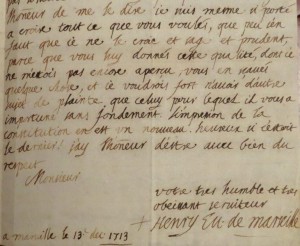 l'honneur de me le dire ie suis mesme d porté
a croire tout ce que vous voulés, que peu s'en
faut que ie ne le croie et sage et prudent,
parce que vous luy donnés cette qualité, dont ie
ne m'etois pas encore aperçu, vous en savés
quelque chose, et ie voudrois fort n'avoir d'autre
sujet de plainte, que celuy pour lequel il vous a
importuné sans fondement. l'impression de la
constitution est un nouveau
le dernier j'ay l'honneur d'estre avec bien du
respect
Monsieur
votre tres humble et tres
obeissant serviteur
a marseille le 13e 1713
+ Henry Ev. de marseille